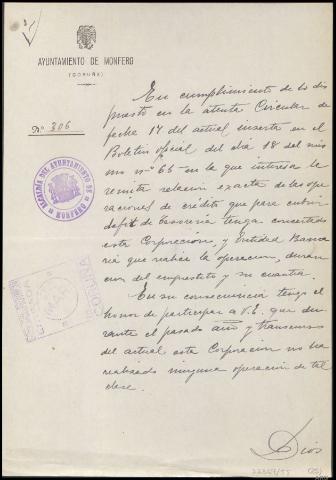 AYUNTAMIENTO DE MONFERO
(CORUÑA)
Nº 306
En cumplimiento de lo dis
puesto en la atenta Circular de
fecha 17 del actual inserta en el
Boletin oficial del dia 18 del mis
mo nº 66 en la que interesa le
remita relacion exacta de las ope
raciones de crédito que para cubrir
deficit de Tesoreria tenga concertadas
esta Corporación, y Entidad Banca
ria que realice la operacion, dura
cion del emprestito y su cuantia.
En su consecuencia tengo el
honor de participar a V.E. que du
rante el pasado año y transcurso
del actual esta Corporacion no ha
realizado ninguna operacion de tal
clase.
Dios
ALCALDIA DEL AYUNTAMIENTO DE
MONFERO
CORUÑA